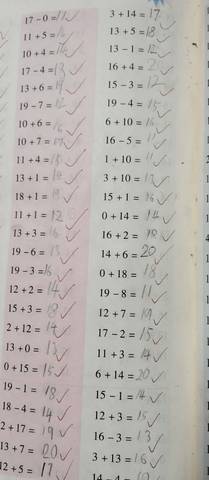 17 - 0 = 17
11 + 5 = 16
10 + 4 = 14
17 - 4 = 13
13 + 6 = 19
19 - 7 = 12
10 + 6 = 16
10 + 7 = 17
11 + 4 = 15
13 + 1 = 14
18 + 1 = 19
11 + 1 = 12
13 + 3 = 16
19 - 6 = 13
19 - 3 = 16
12 + 2 = 14
15 + 3 = 18
2 + 12 = 14
13 + 0 = 13
0 + 15 = 15
19 - 1 = 18
18 - 4 = 14
2 + 17 = 19
13 + 7 = 20
12 + 5 = 17
3 + 14 = 17
13 + 5 = 18
13 - 1 = 12
16 + 4 =
15 - 3 = 12
19 - 4 = 15
6 + 10 = 16
16 - 5 = 11
1 + 10 = 11
3 + 10 = 13
15 + 1 = 16
0 + 14 = 14
16 + 2 = 18
14 + 6 = 20
0 + 18 = 18
19 - 8 = 11
12 + 7 = 19
17 - 2 = 15
11 + 3 = 14
6 + 14 = 20
15 - 1 = 14
12 + 3 = 15
16 - 3 = 13
3 + 13 = 16